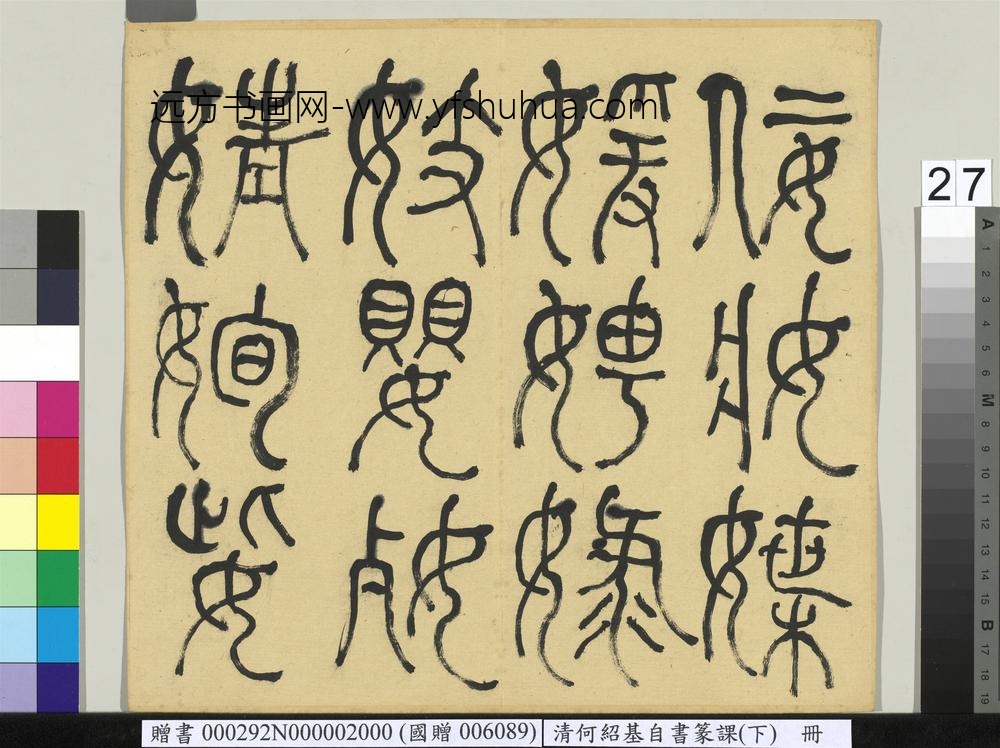 远方书画网-www.yfshuhua.com
佞妝媟
媛娉娽
妓嬰
婧姰姕
27
A 1 2 3 4 5 6 M 8 9 10 11 12 13 14 15 B 17 18 19
贈書 000292N000002000 (國贈 006089) 清何紹基自書篆課(下) 冊